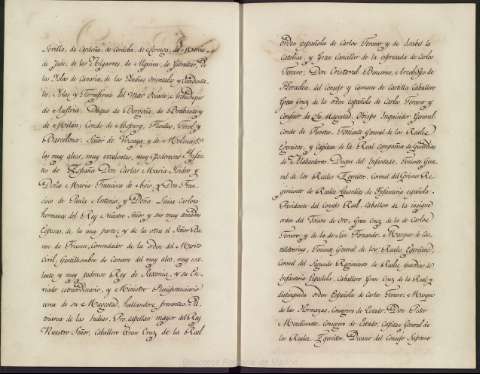 Sevilla, de Cerdeña, de Cordoba, de Corcega, de Murcia,
de Jaen, de los Algarves, de Algecira, de Gibraltar, de
las Islas de Canaria, de las Yndias Orientales y Occidenta-
les, Yslas, y Tierrafirme del Mar Oceano; Archiduque
de Austria; Duque de Borgoña, de Brabante y
de Milan; Conde de Abspurg, Flandes, Tirol, y
Barcelona; Señor de Vizcaya, y de Molina &c.
los muy altos, muy excelentes, y muy poderosos Ynfan-
tes de España Don Carlos Maria Ysidro y
Doña Maria Francisca de Asis, y Don Fran-
cisco de Paula Antonio, y Doña Luisa Carlota
hermanos del Rey Nuestro Señor y sus muy amadas
Esposas, de la una parte, y de la otra el Señor
de Comendador de la orden del Merito
Civil, Gentilhombre de Camara del muy alto, muy exce-
lente, y muy poderoso Rey de Saxonia, y su En-
viado extraordinario, y Ministro Plenipotenciario
cerca de su Magestad, hallandose presentes, Pa-
triarca de las Yndias, Pro-capellan mayor del Rey
Nuestro Señor, Caballero Gran Cruz de la Real
orden española de Carlos Tercero y de Ysabel la
Catolica, y Gran Canciller de la espresada de Carlos
Tercero; Don Cristoval Bencomo, Arzobispo de
Heraclea, del Consejo y Camara de Castilla, Caballero
Gran Cruz de la orden española de Carlos Tercero y
Confesor de Su Magestad; Obispo Ynquisidor General;
Conde de Teniente General de los Reales
Egercitos, y Capitan de la Real Compañia de Guardias
de Alabarderos; Duque del Ynfantado, Teniente Gene-
ral de los Reales Egercitos, Coronel del Primer Re-
gimiento de Reales Guardias de Ynfanteria española,
Presidente del Consejo Real, Caballero de la insigne
orden del Toison de Oro, Gran Cruz de la de Carlos
Tercero y de la de San Fernando; Marques de Cas-
telldosrius, Teniente General de los Reales Egercitos,
Coronel del Segundo Regimiento de Reales Guardias de
Ynfanteria Española, Caballero Gran Cruz de la Real y
distinguida orden Española de Carlos Tercero; Marques
de las Hormazas, Consejero de Estado; Don Pedro
Mendinueta, Consejero de Estado, Capitan General de
los Reales Egercitos, Decano del Consejo Supremo